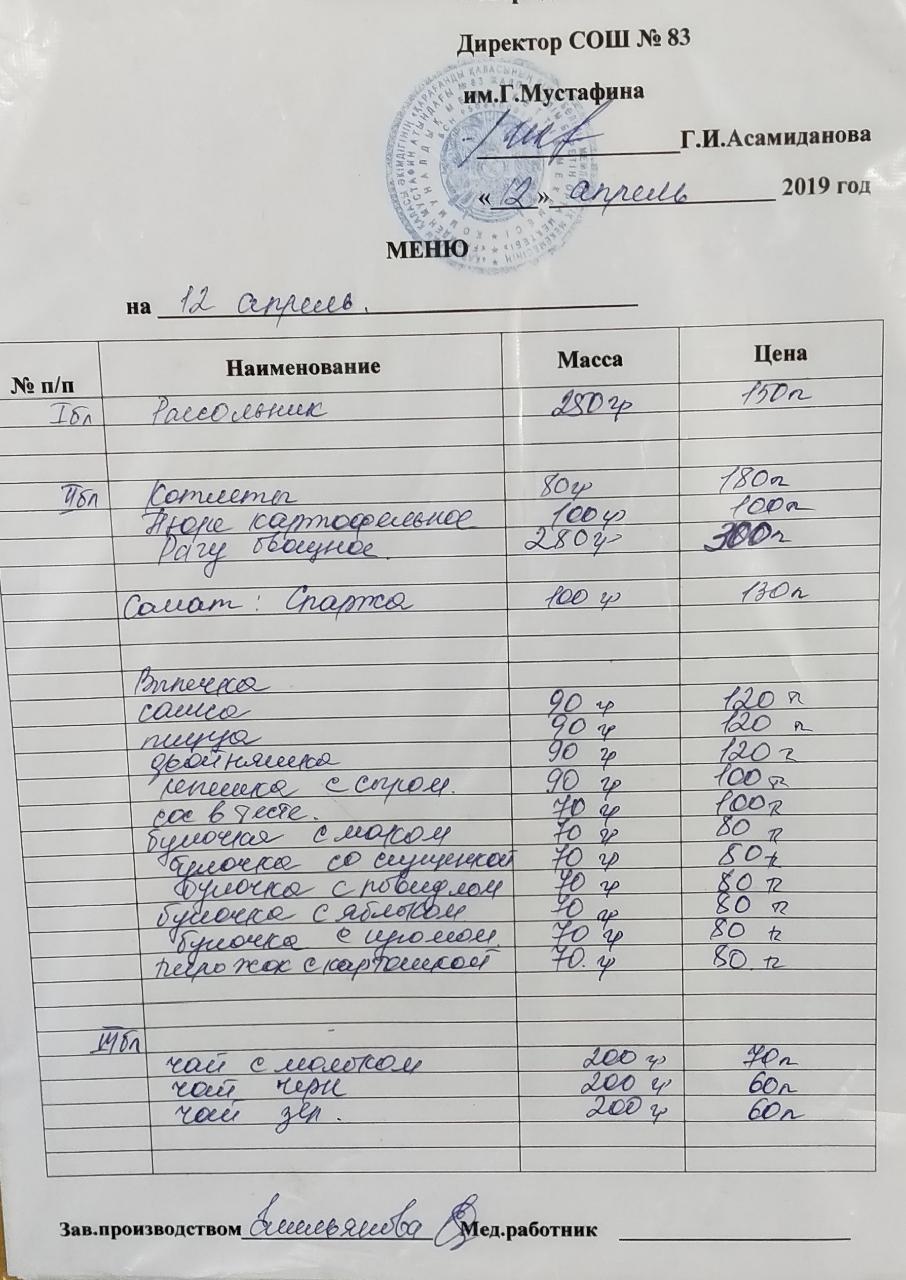 Директор СОШ № 83
им.Г.Мустафина
Г.И.Асамиданова
« 12 » апрель 2019 год
МЕНЮ
на 12 апрель.
№ п/п Наименование Масса Цена
I бл Рассольник 250 гр 150 т
II бл Котлеты 80 гр 180 т
Пюре картофельное 100 гр 100 т
Рагу Овощное. 280 гр 300 т
Салат: Спаржа 100 гр 130 т
Выпечка
самса 90 гр 120 т
пицца 90 гр 120 т
двойняшка 90 гр 120 т
лепешка с сыром. 90 гр 100 т
сос в тесте. 70 гр 100 т
булочка с маком 70 гр 80 т
булочка со сгущенкой 70 гр 80 т
булочка с повидлом 70 гр 80 т
булочка с яблоком 70 гр 80 т
булочка с изюмом. 70 гр 80 т
пирожок с картошкой 70. гр 80. т
III бл
чай с молоком 200 гр 70 т
чай черн 200 гр 60 т
чай зел. 200 гр 60 т
Зав.производством Емельянова Мед.работник